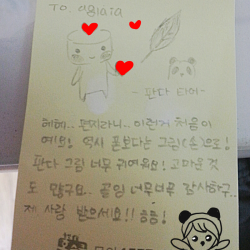 To. aglaia
- 판다 티어 -
헤헤.. 편지라니.. 이런거 처음이
예요! 역시 폰보다는 그림(손)으로!
판다 그림 너무 귀여워요! 고마운 것
도 많구요.. 끝잉 너무너무 감사하구..
제 사랑 받으세요!! 흐흥!